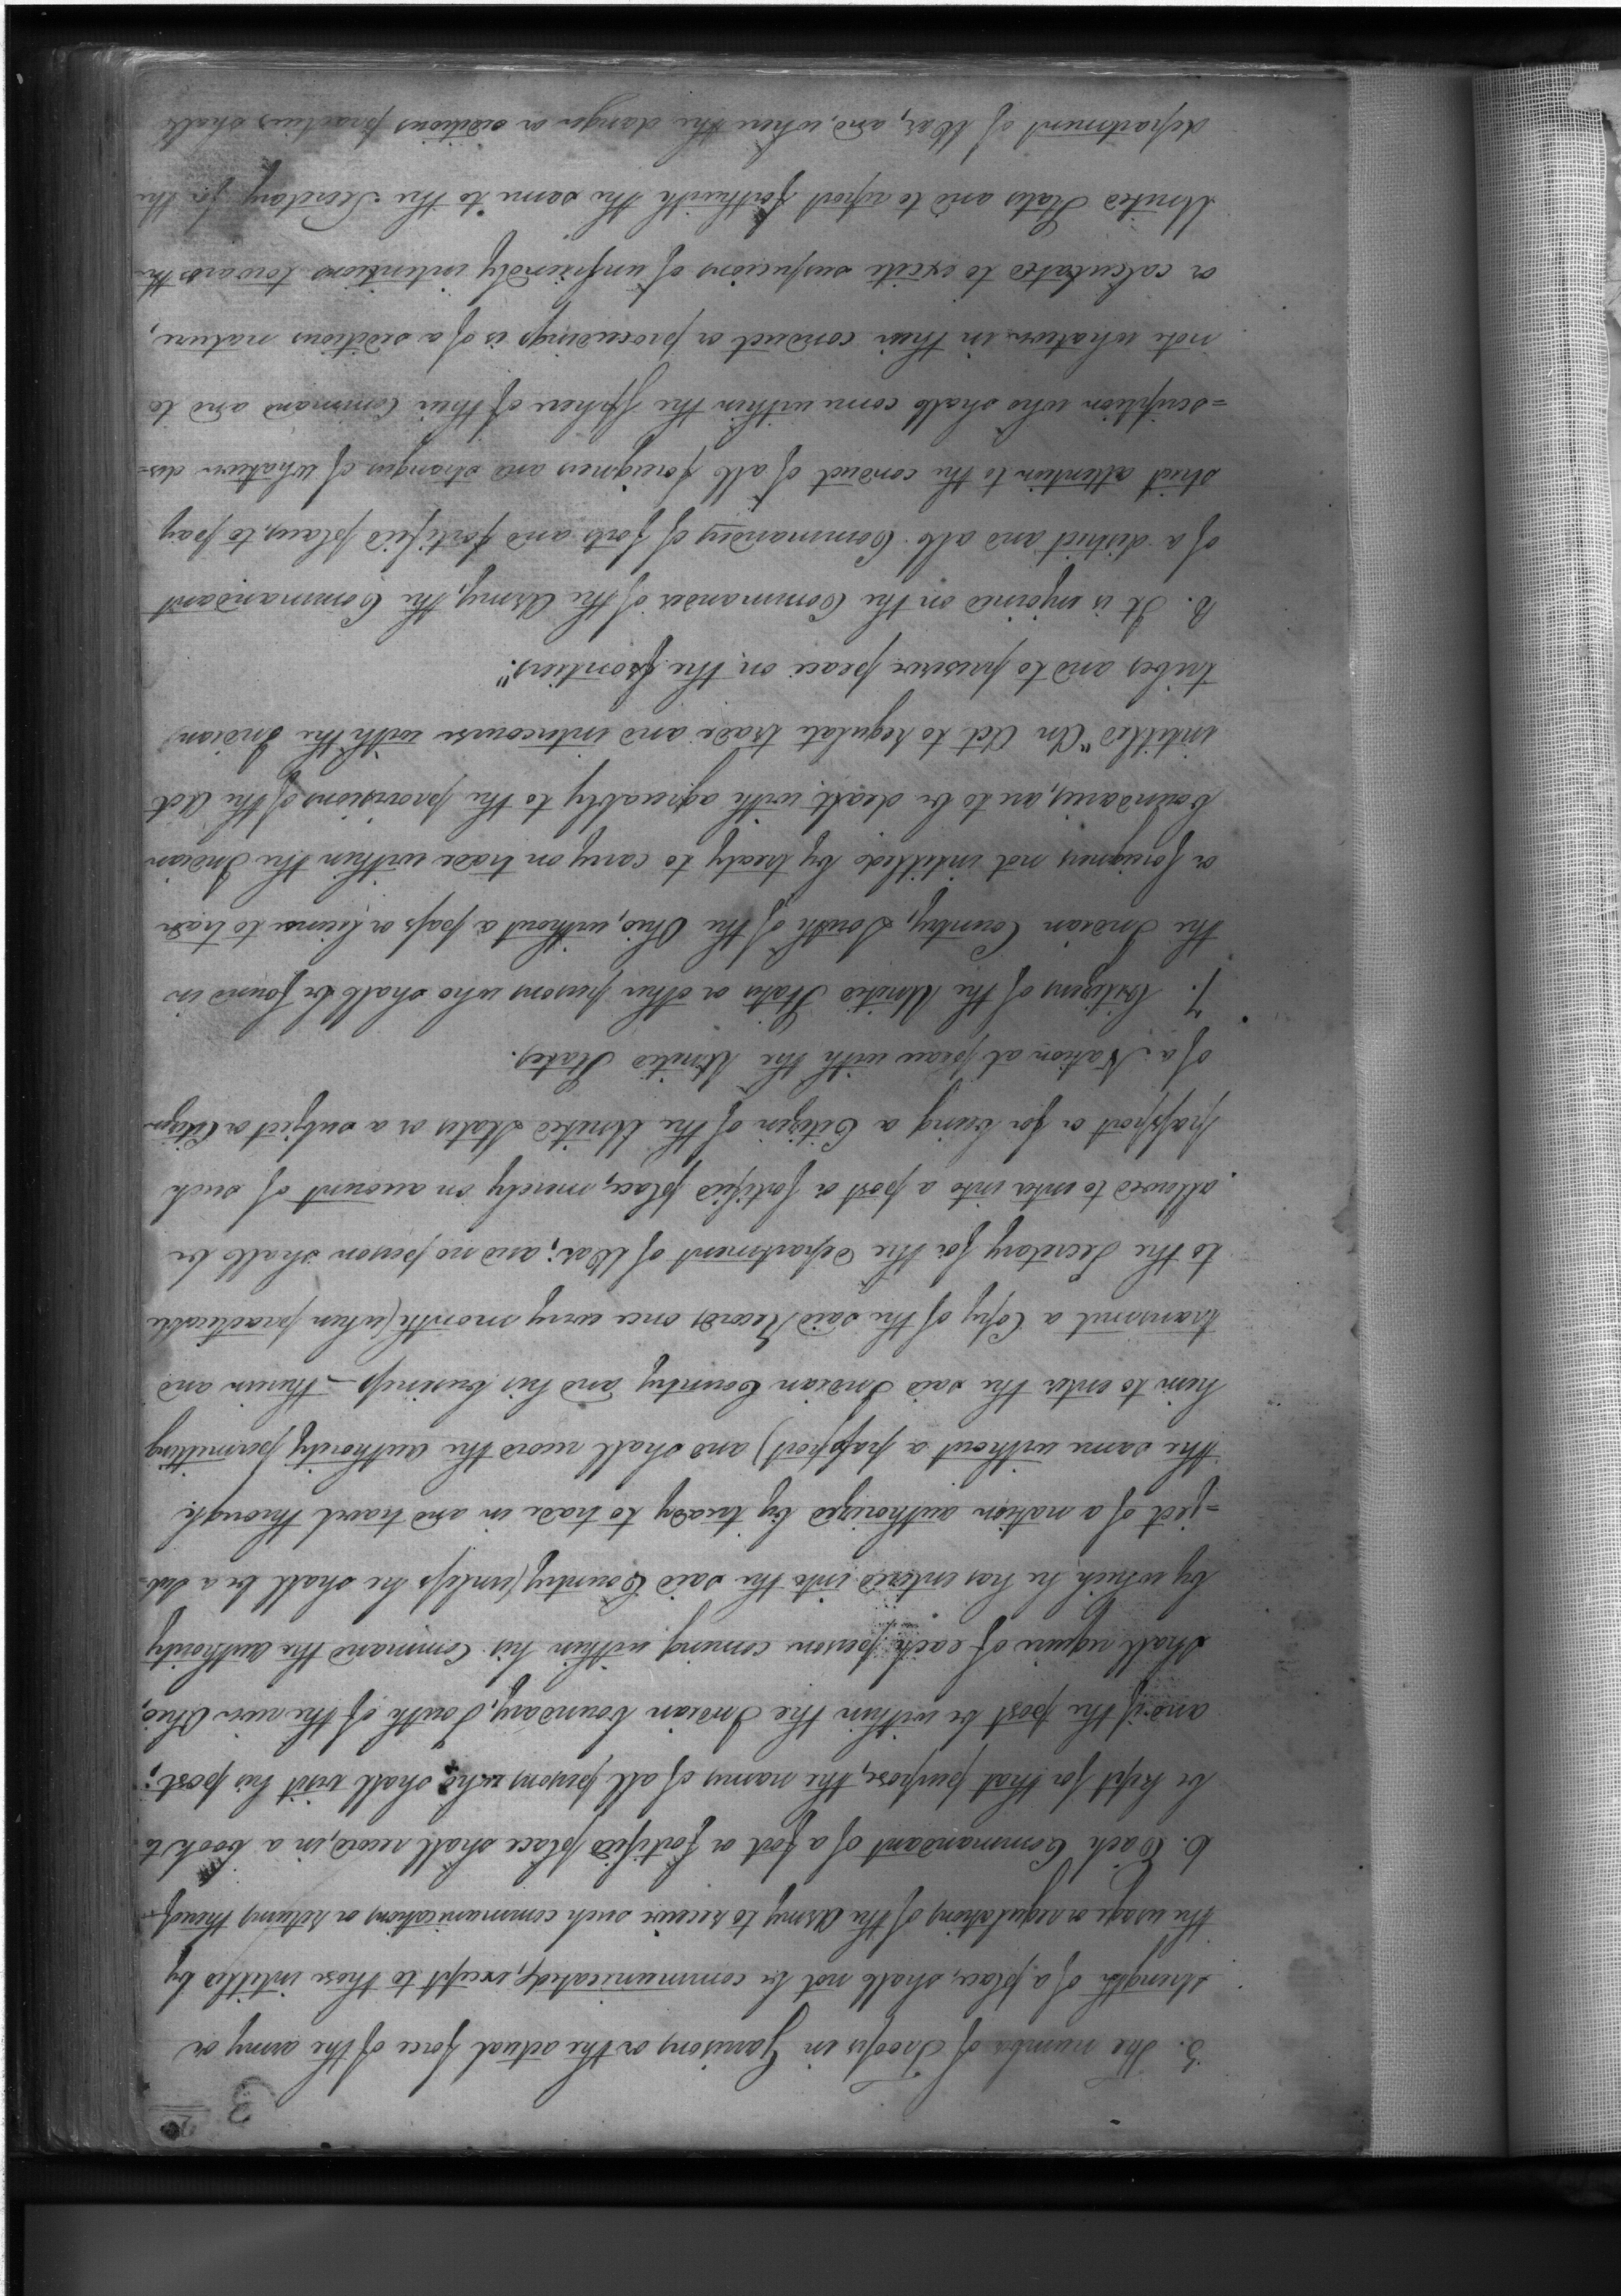 3
5. The number of Troops in Garrisons or the actual force of the army or
strength of a place, shall not be communicated, except to those intitled by
the usage or regulations of the Army to receive such communications or returns thereof.
6. Each Commandant of a fort or fortified place shall record, in a book to
be kept for that purpose, the names of all persons who shall visit his post;
and if the post be within the Indian boundary, South of the river Ohio,
shall require of each person coming within his Command the authority
by which he has entered into the said Country (unless he shall be a sub-
=ject of a nation authorized by treaty to trade in and travel through
the same without a passport) and shall record the authority permitting
him to enter the said Indian Country and his business therein and
transmit a Copy of the said Record, once every month (when practicable
to the Secretary for the department of War; and no person shall be
allowed to enter into a post or fortified place, merely on account of such
passport or for being a Citizen of the United States or a subject or Citizen
of a Nation at peace with the United States.
7. Citizens of the United States or other persons who shall be found in
the Indian Country, South of the Ohio, without a pass or license to trade
or foreigners not intitled by treaty to carry on trade within the Indian
boundaries, are to be dealt with agreeably to the provisions of the Act
intitled "An Act to regulate trade and intercourse with the Indian
tribes and to preserve peace on the frontiers."
8. It is enjoined on the Commander of the Army, the Commandant
of a district and all Commanders of forts and fortified places, to pay
strict attention to the conduct of all foreigners and strangers of whatever des-
=scription who shall come within the Sphere of their Command and to
note whatever in their conduct or proceedings is of a seditious nature,
or calculated to excite suspicions of unfriendly intentions towards the
United States and to report forthwith the same to the Secretary for the
department of War, and, where the danger or seditious practices shall